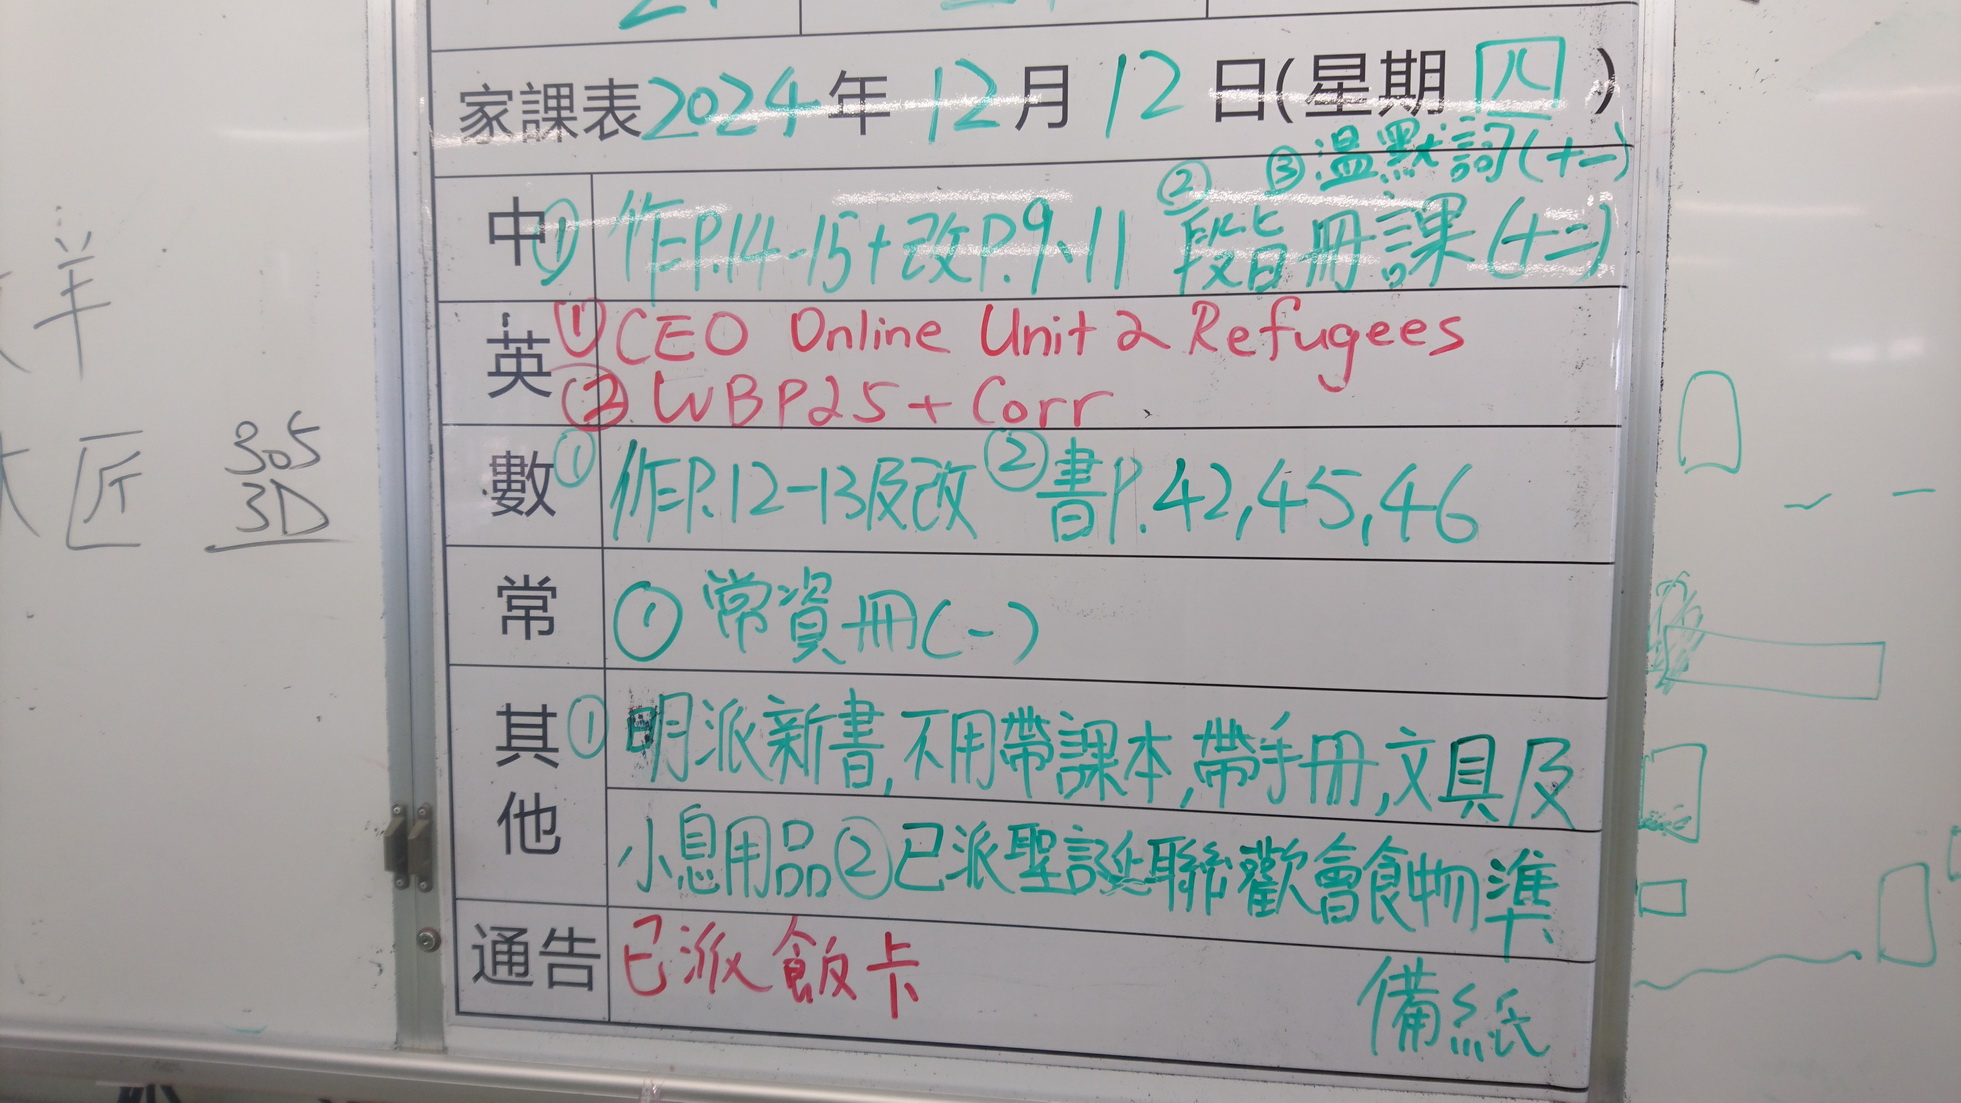 家課表2024年12月12日(星期四)
③溫默詞(十一)
中①作P.14-15+改P.9、11 ②段皆冊課(十二)
英①CEO Online Unit 2 Refugees
②WBP25+Corr
數①作P.12-13及改 ②書P.42,45,46
常①常資冊(一)
其他①明派新書,不用帶課本,帶手冊,文具及
小息用品②已派聖誕聯歡會食物準
備紙
通告 已派飯卡
洋
匠 305
3D